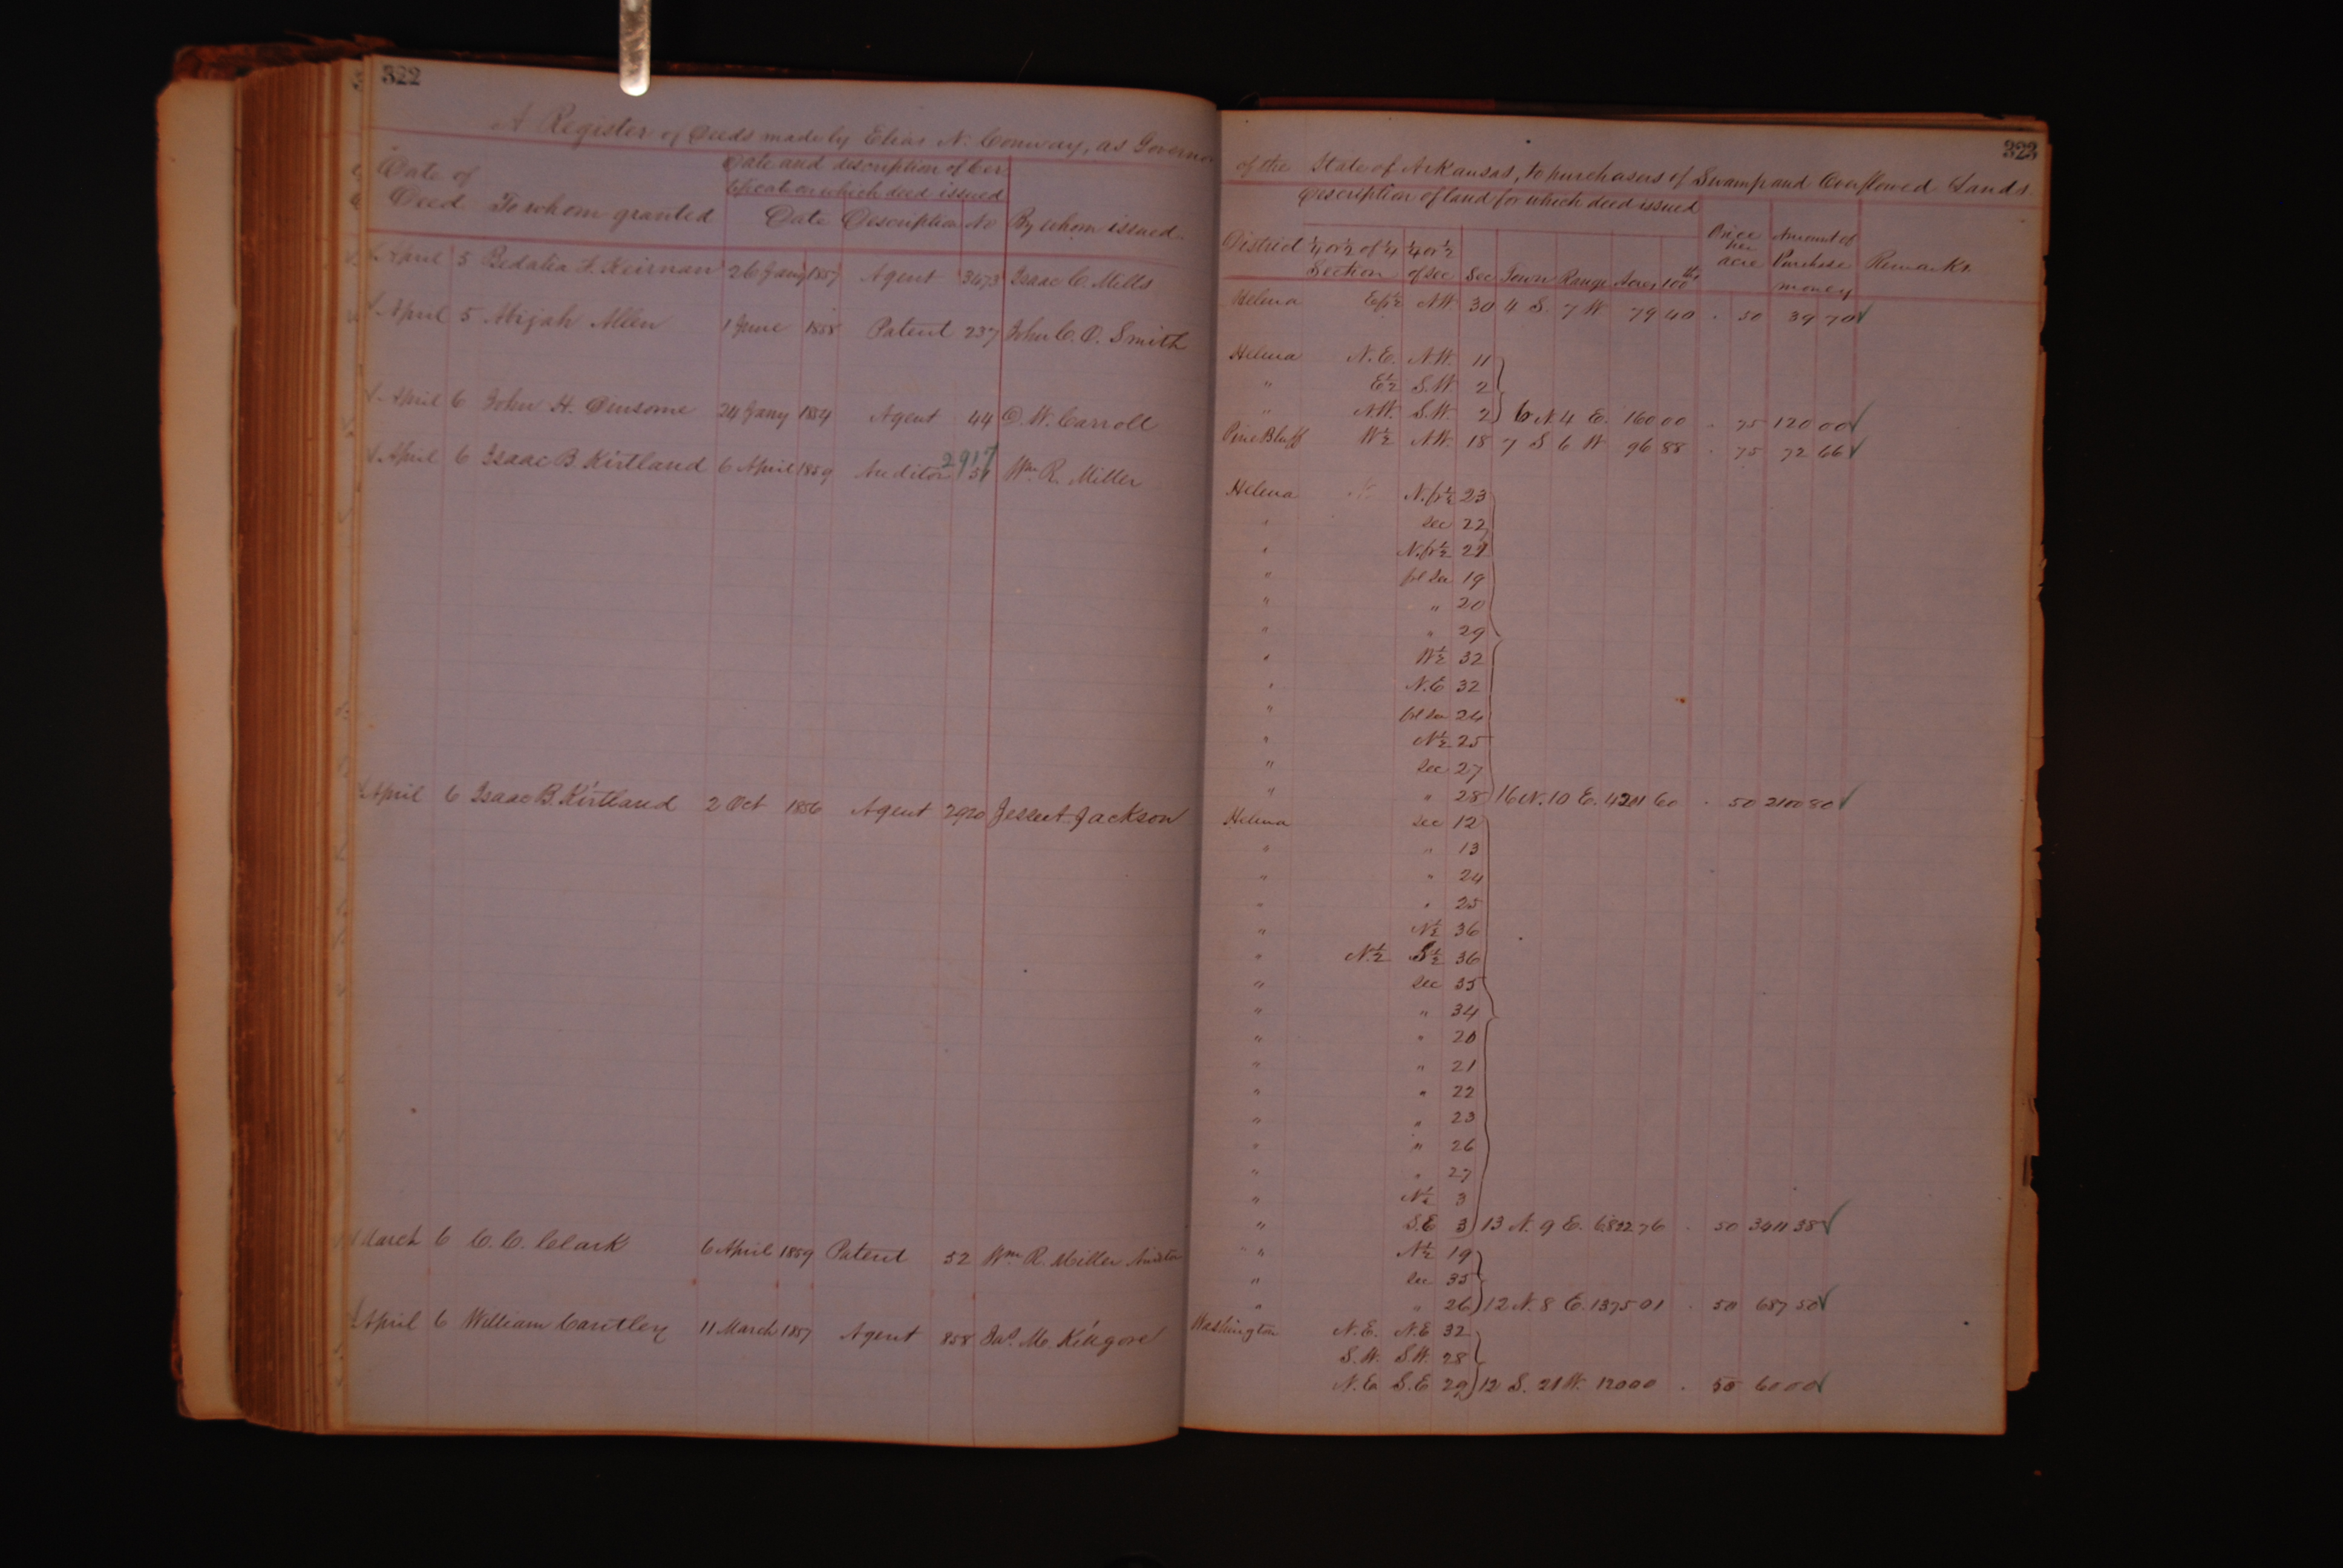 322
A Register of Deeds made by Elias N. Conway, as Governor
Date of Deed
To whom granted
Date and discription of Cer
tificate on which deed issued
Date Description No
By whom issued.
April 5 Bedalia F. Keirnan 26 Jany 1857 Agent 3473 Isaac C. Mills
April 5 Abijah Allen 1 June 1858 Patent 237 John C. O. Smith
April 6 John H. 24 Jany 1854 Agent 44 D. W. Carroll
2917
April 6 Isaac B. Kirtland 6 April 1859 Auditor 51 Wm. R. Miller
April 6 Isaac B. Kirtland 2 Oct 1856 Agent 2920 Jesse A. Jackson
March 6 C. C. Clark 6 April 1859 Patent 52 Wm. R. Miller Auditor
April 6 William Cantley 11 March 1857 Agent 858 Jas. M. Kilgore
323
of the State of Arkansas, to purchasers of Swamp and Overflowed Lands
Description of land for which deed issued
District ¼ or ½ of ¼ Section ¼ or ½ of Sec Sec Town Range Acres 100ths
Price per acre
Amount of Purchase money
Remarks
Helena E fr ½ N.W. 30 4 S. 7 W 79 40 . 50 39 70
Helena N.E. N.W. 11
" E½ S.W. 2
" N.W. S.W. 2 6 N. 4 E. 160 00 . 75 120 00
Pine Bluff W½ N.W. 18 7 S 6 W 96 88 . 75 72 66
Helena N. fr ½ 23
" Sec 22
" N. fr ½ 21
" frl Sec 19
" " 20
" " 29
" W½ 32
" N.E 32
" frl Sec 24
" N½ 25
" Sec 27
" " 28 16 N. 10 E. 4201 60 . 50 2100 80
Helena Sec 12
" " 13
" " 24
" " 25
" N½ 36
" N½ S½ 36
" Sec 35
" " 34
" " 20
" " 21
" " 22
" " 23
" " 26
" " 27
" N½ 3
" S.E 3 13 N. 9 E. 6822 76 . 50 3411 38
" N½ 19
" Sec 35
" " 26 12 N. 8 E. 1375 01 . 50 687 50
Washington N.E. N.E 32
S.W. S.W. 28
N.E S.E 29 12 S. 21 W. 120 00 . 50 60 00